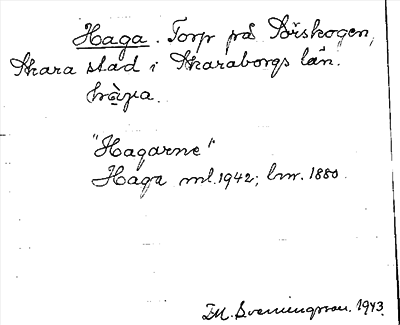 Haga. Torp på Dörskogen,
Skara stad i Skaraborgs län.
"Hagarne"
Haga ml. 1942; lmr. 1880.
M. Svenningsson. 1943.